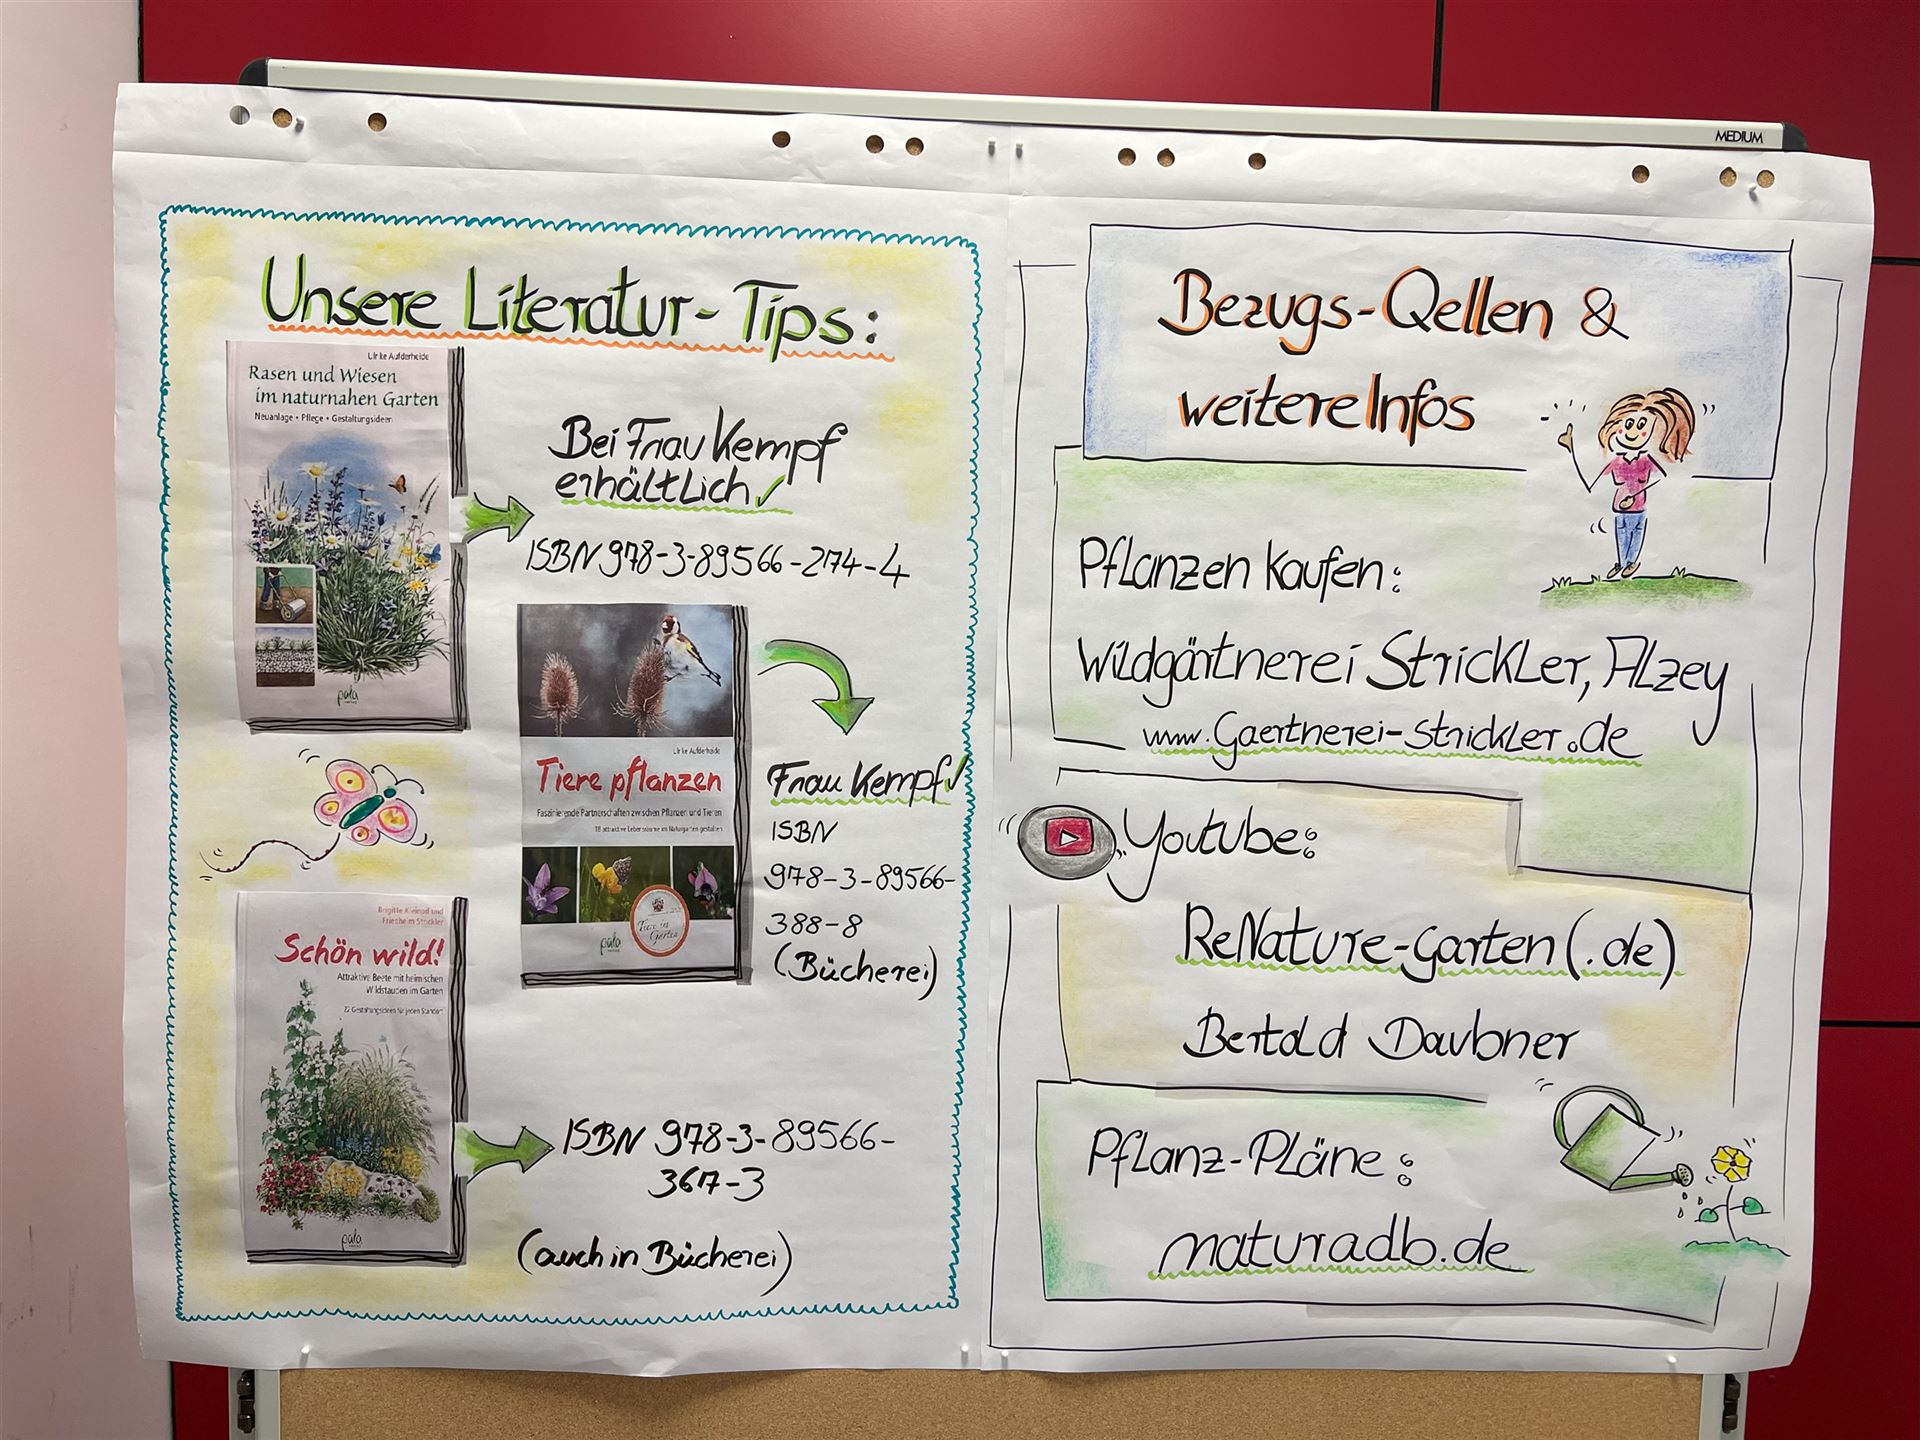 MEDIUM
Unsere Literatur-Tips:
Ulrike Aufderheide
Rasen und Wiesen
im naturnahen Garten
Neuanlage • Pflege • Gestaltungsideen
pala
verlag
Bei Frau Kempf
erhältlich ✓
ISBN 978-3-89566-274-4
Ulrike Aufderheide
Tiere pflanzen
Faszinierende Partnerschaften zwischen Pflanzen und Tieren
18 attraktive Lebensräume im Naturgarten gestalten
Tiere im
Garten
pala
verlag
Frau Kempf ✓
ISBN
978-3-89566-
388-8
(Bücherei)
Brigitte Kleinod und
Friedhelm Strickler
Schön wild!
Attraktive Beete mit heimischen
Wildstauden im Garten
22 Gestaltungsideen für jeden Standort
pala
verlag
ISBN 978-3-89566-
367-3
(auch in Bücherei)
Bezugs-Qellen &
weitere Infos
Pflanzen kaufen:
Wildgärtnerei Strickler, Alzey
www.Gaertnerei-Strickler.de
Youtube:
ReNature-Garten(.de)
Bertold Daubner
Pflanz-Pläne:
naturadb.de